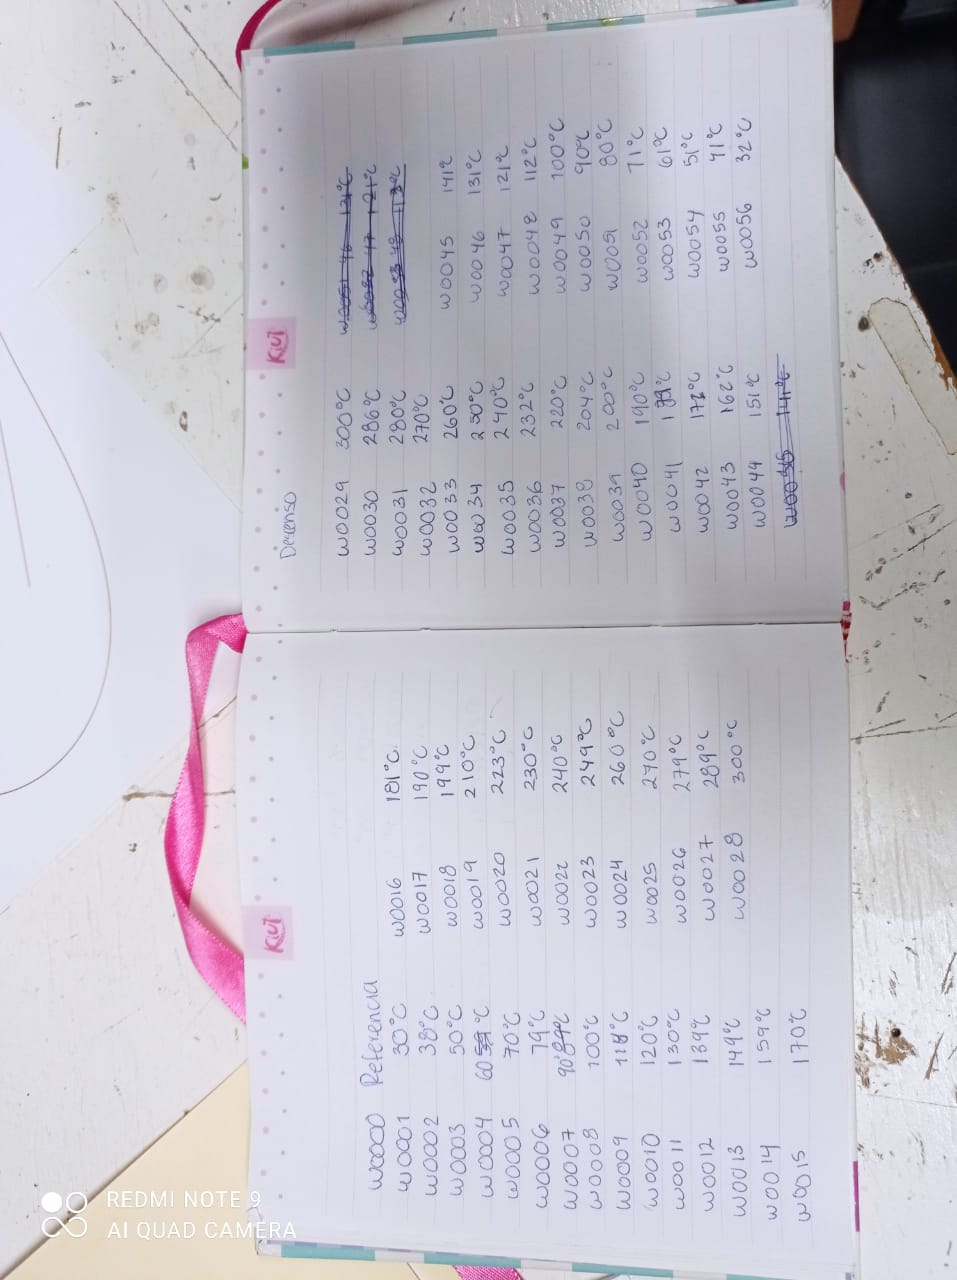 REDMI NOTE 9
AI QUAD CAMERA
Kiut
W0000 Referencia
W0001 30°C
W0002 38°C
W0003 50°C
W0004 60 °C
W0005 70°C
W0006 79°C
W0007 90°
W0008 100°C
W0009 °C
W0010 120°C
W0011 130°C
W0012 139°C
W0013 149°C
W0014 159°C
W0015 170°C
W0016 181°C.
W0017 190°C
W0018 199°C
W0019 210°C
W0020 223°C
W0021 230°C
W0022 240°C
W0023 249°C
W0024 260°C
W0025 270°C
W0026 279°C
W0027 289°C
W0028 300°C
Kiut
Descenso
W0029 300°C
W0030 286°C
W0031 280°C
W0032 270°C
W0033 260°C
W0034 250°C
W0035 240°C
W0036 232°C
W0037 220°C
W0038 204°C
W0039 200°C
W0040 190°C
W0041
W0042 172°C
W0043 162°C
W0044 151°C
W0045 141°C
W0046 131°C
W0047 121°C
W0048 112°C
W0049 100°C
W0050 90°C
W0051 80°C
W0052 71°C
W0053 61°C
W0054 51°C
W0055 41°C
W0056 32°C